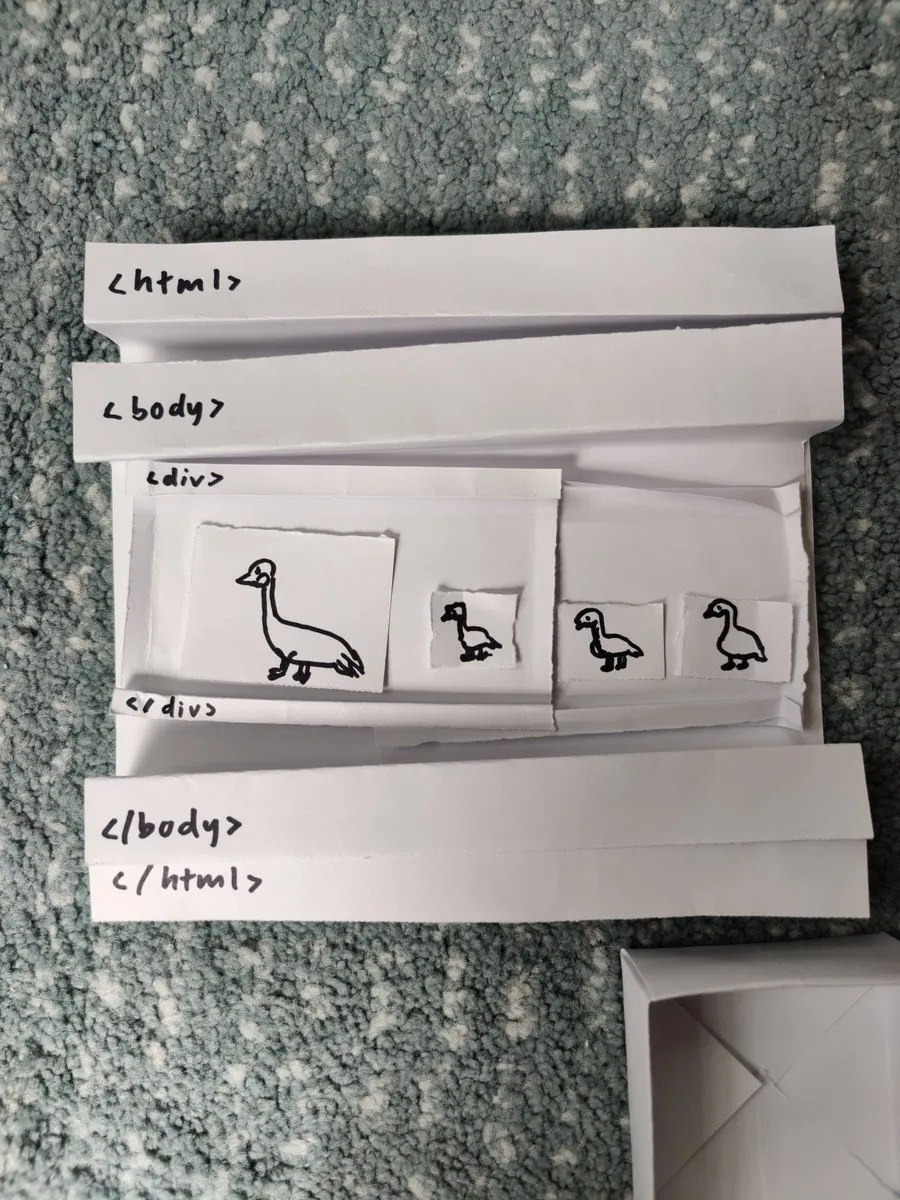 <html>
<body>
<div>
</div>
</body>
</html>